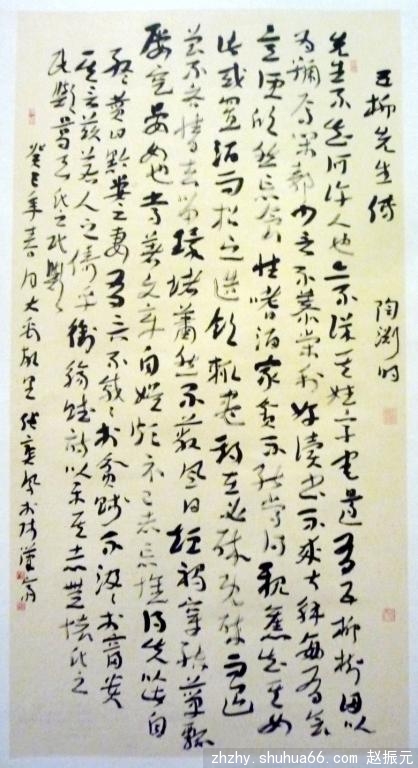 五柳先生傳 陶淵明
先生不知何許人也亦不詳其姓字宅邊有五柳樹因以
為號焉閑靜少言不慕榮利好讀書不求甚解每有會
意便欣然忘食性嗜酒家貧不能常得親舊知其如
此或置酒而招之造飲輒盡期在必醉既醉而退
曾不吝情去留環堵蕭然不蔽風日短褐穿結簞瓢
屢空晏如也常著文章自娛頗示己志忘懷得失以此自
終贊曰黔婁之妻有言不戚戚於貧賤不汲汲於富貴
其言茲若人之儔乎銜觴賦詩以樂其志無懷氏之
民歟葛天氏之民歟
癸巳年春月大禹故里
zhzhy.shuhua66.com 赵振元